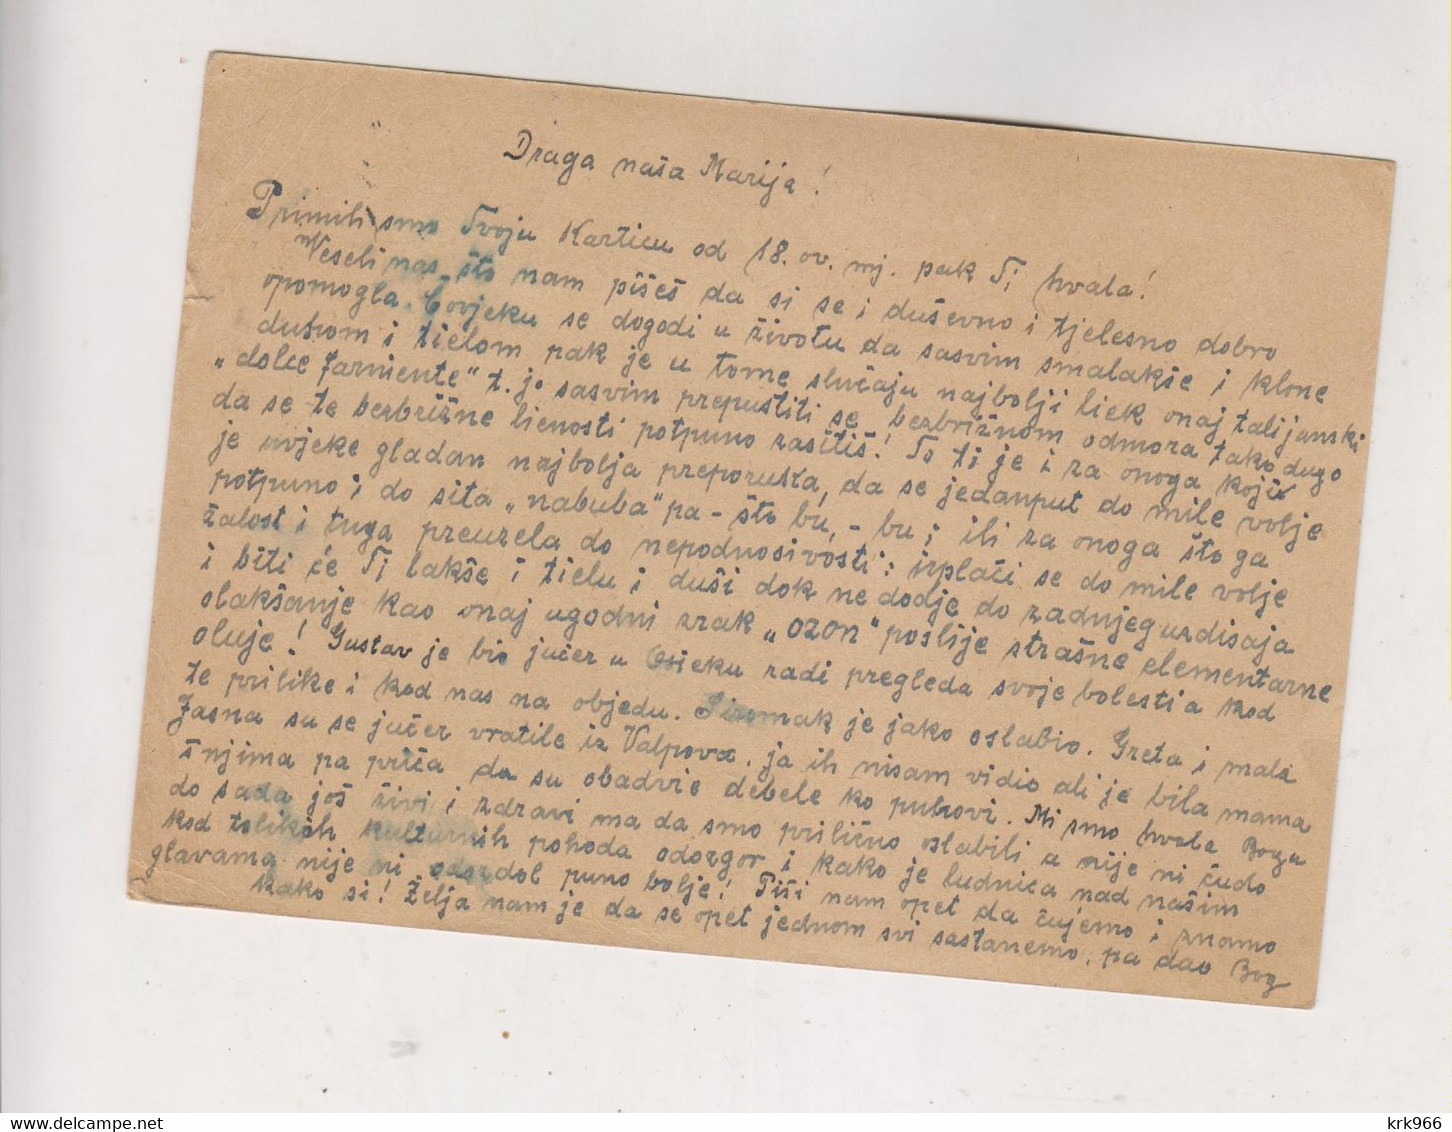 Draga naša Marija!
Primili smo Tvoju Karticu od 18. ov. mj. pak Ti hvala!
Veseli nas što nam pišeš da si se i duševno i tjelesno dobro
opomogla. Čovjeku se dogodi u životu da sasvim smalakše i klone
duhom i tielom pak je u tome slučaju najbolji liek onaj talijanski
„dolce farniente" t. je sasvim prepustiti se bezbrižnom odmora tako dugo
da se te bezbrižne lienosti potpuno zasitiš! To ti je i za onoga koji
je uvjeke gladan najbolja preporuka, da se jedanput do mile volje
potpuno i do sita „nabuba" pa - što bu, - bu; ili za onoga što ga
žalost i tuga preuzela do nepodnosivosti: isplači se do mile volje
i biti će Ti lakše i tielu i duši dok ne dodje do zadnjeg uzdisaja
olakšanje kao onaj ugodni zrak „ozon" poslije strašne elementarne
oluje! Gustav je bio jučer u Osieku radi pregleda svoje bolesti a kod
te prilike i kod nas na objedu. Siromak je jako oslabio. Greta i mala
Jasna su se jučer vratile iz Valpova. ja ih nisam vidio ali je bila mama
š njima pa priča da su obadvie debele ko puhovi. Mi smo hvala Bogu
do sada još živi i zdravi ma da smo prilično oslabili a nije ni čudo
kod tolikih kulturnih pohoda odozgor i kako je ludnica nad našim
glavama nije ni odozdol puno bolje! Piši nam opet da čujemo i znamo
kako si! Želja nam je da se opet jednom svi sastanemo, pa dao Bog
krk966